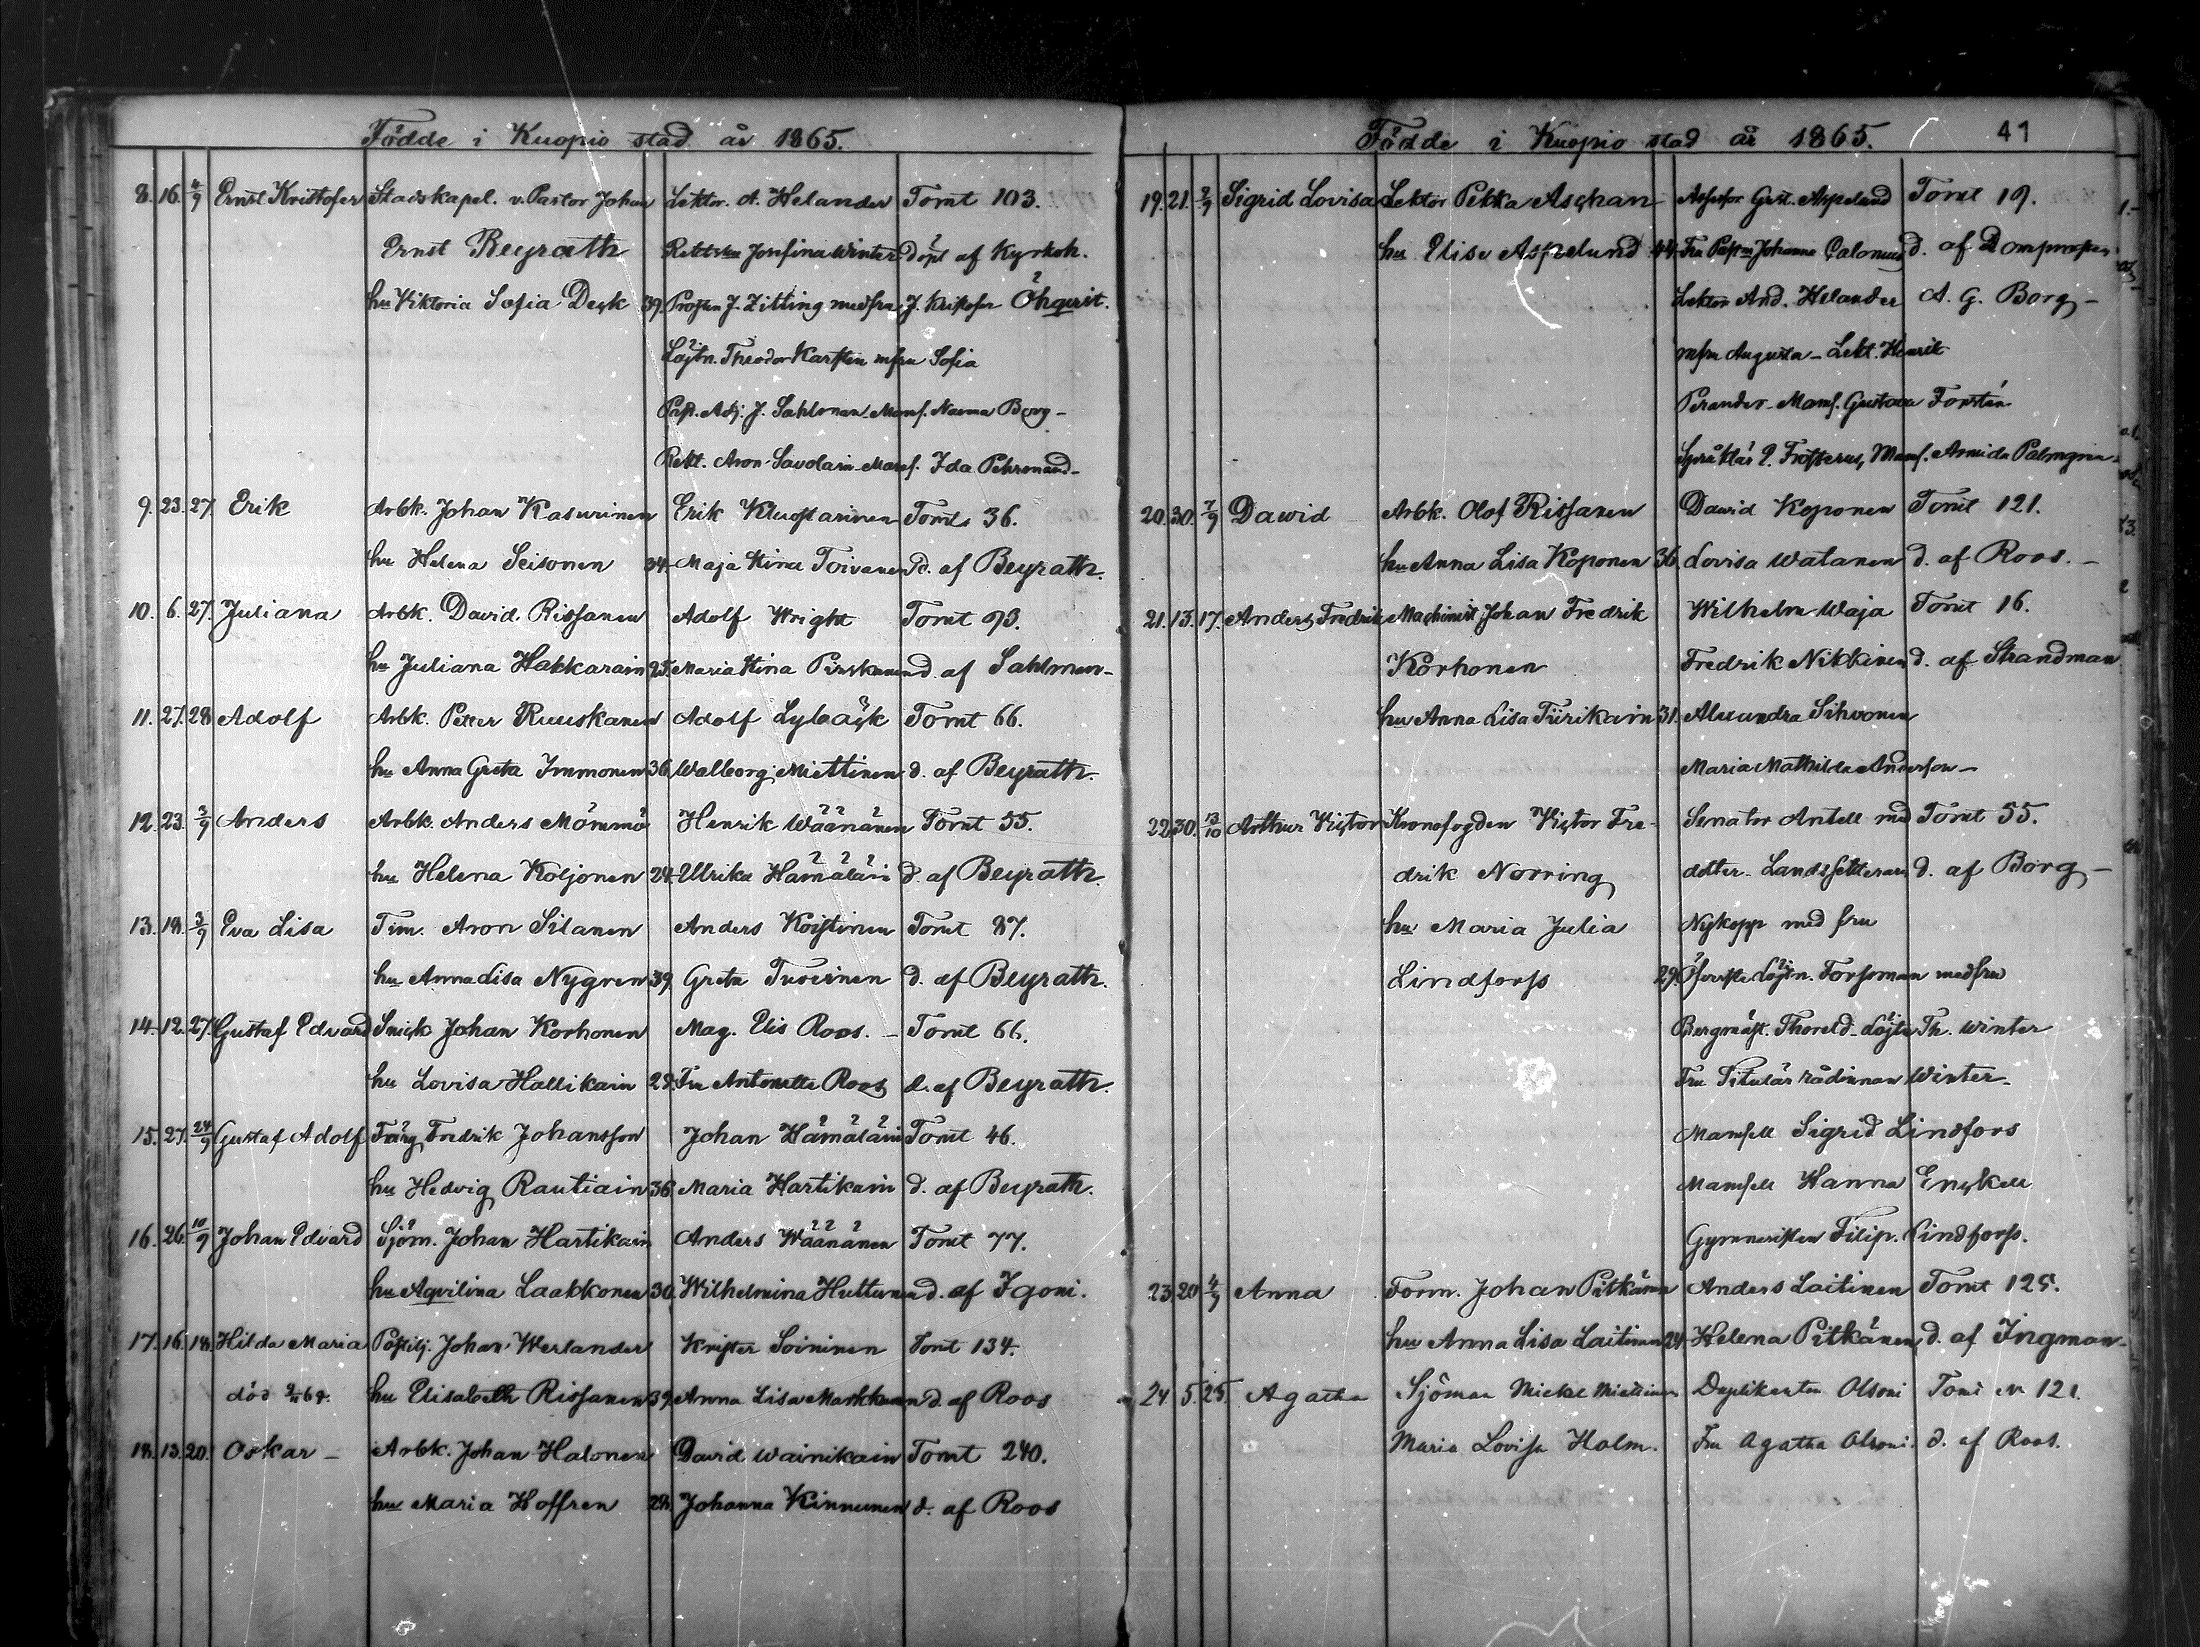 Födde i Kuopio stad år 1865.
8. 16. 4/9 Ernst Kristofer Stadskapel. v. Pastor Johan Lektor. A. Helander Tomt 103.
Ernst Beyrath Josefina Winter döpt af Kyrkoh.
hu Viktoria Sofia Deck 39. Prosten J. Zitting med fru J. Kristofer Öhqvist.
Löjtn. Theodor Karsten m fru Sofia
Past. Adj. J. Sahlman Mams. Nanna Borg –
Rekt. Aron Savolain Mams. Ida Pehrmand –
9. 23. 27. Erik Arbk. Johan Kasurinen Erik Tomts 36.
hu Helena Seisonen 34. Maja Stina Toivanen d. af Beyrath.
10. 6. 27. Juliana Arbk. David Rissanen Adolf Wright Tomt 93.
hu Juliana Hakkarain 25. Maria Stina Pirskanen d. af Sahlman –
11. 27. 28. Adolf Arbk. Petter Ruuskanen Adolf Lybäck Tomt 66.
hu Anna Greta Immonen 36. Walborg Miettinen d. af Beyrath.
12. 23. 3/9 Anders Arbk. Anders Mömmö Henrik Wäänänen Tomt 55.
hu Helena Koljonen 24. Ulrika Hämäläin d. af Beyrath.
13. 18. 3/9 Eva Lisa Tim. Aron Silanen Anders Koistinen Tomt 87.
hu Anna Lisa Nygren 39. Greta Tuovinen d. af Beyrath.
14. 12. 27. Gustaf Edvard Snick Johan Korhonen Mag. Elis Roos. – Tomt 66.
hu Lovisa Hallikain 28. Fru Antonette Roos d. af Beyrath.
15. 27. 24/9 Gustaf Adolf Färg. Fredrik Johansson Johan Hämäläin Tomt 46.
hu Hedvig Rautiain 36. Maria Hartikain d. af Beyrath.
16. 26. 10/9 Johan Edvard Sjöm. Johan Hartikain Anders Wäänänen Tomt 77.
hu Aqvilina Laakkonen 30. Wilhelmina Huttunen d. af Igoni.
17. 16. 18. Hilda Maria Postilj. Johan Werlander Krister Soininen Tomt 134.
död hu Elisabeth Rissanen 39. Anna Lisa Markkanen d. af Roos
18. 13. 20. Oskar – Arbk. Johan Halonen David Wainikain Tomt 240.
hu Maria Hoffren 28. Johanna Kinnunen d. af Roos
Födde i Kuopio stad år 1865. 41
19. 21. 2/9 Sigrid Lovisa Lektor Pekka Aschan Assessor Gust. Aspelund Tomt 19.
hu Elise Aspelund 44. Fru Johanna Calonius d. af Domprosten
Lektor And. Helander A. G. Borg –
m fru Augusta – Lekt. Henrik
Perander – Mams. Gustava Forstén
Språklär. E. Frosterus, Mams. Armida Palmgren
20. 30. 7/9 Dawid Arbk. Olof Rissanen Dawid Koponen Tomt 121.
hu Anna Lisa Koponen 36. Lovisa Watanen d. af Roos. –
21. 13. 17. Anders Fredrik Machinist Johan Fredrik Wilhelm Waja Tomt 16.
Korhonen Fredrik Nikkinen d. af Strandman
hu Anna Lisa Tiirikain 31. Alexandra Sihvonen
Maria Mathilda Anderson –
22. 30. 13/10 Arthur Victor Kronofogden Victor Fre- Senator Antell med Tomt 55.
drik Norring dotter – Landssekreterare d. af Borg –
hu Maria Julia Nykopp med fru
Lindforss 29. Öfverste Löjtn. Forssman med fru
Bergmäst. Thoreld – Löjtn Th. Winter
Fru Titulär rådinnan Winter –
Mamsell Sigrid Lindfors
Mamsell Hanna Enckell
Gymnasisten Filip. Lindforss.
23. 20. 4/9 Anna Form. Johan Pitkänen Anders Laitinen Tomt 125.
hu Anna Lisa Laitinen 24. Helena Pitkänen d. af Ingman –
24. 5. 25. Agatha Sjöman Mickel Miettinen Duplikanten Olsoni Tomt 121
Maria Lovisa Holm. Fru Agatha Olsoni. d. af Roos.